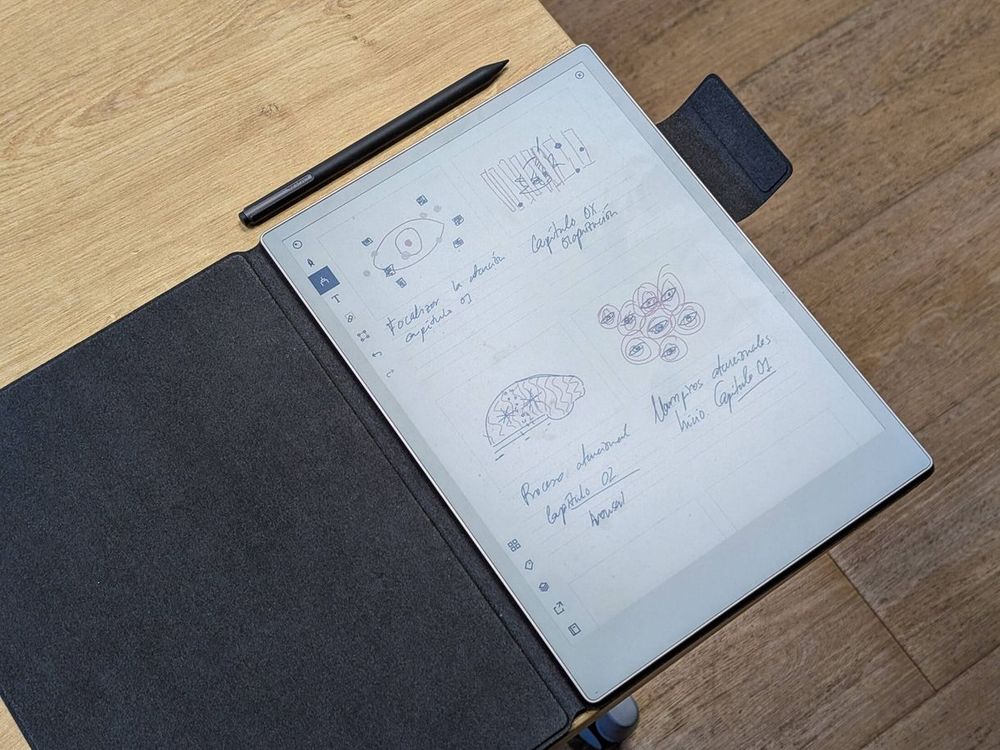 Focalizar la atención
capítulo 01
Capítulo 0X
organización
Proceso atencional
Capítulo 02
Arousal
Vampiros atencionales
Inicio. Capítulo 01
T